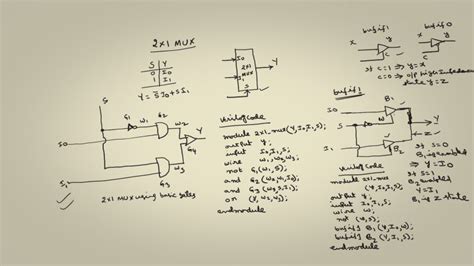 2x1 MUX
S Y
0 I0
1 I1
Y = S̅I0 + SI1
I0
I1
2x1
MUX
Y
S
bufif1
x y
c
st c=1 => y=x
c=0 => o/p high Impedance
state y=Z
bufif0
x y
c
S
G1
w1
G2
w2
Y
G4
I0
w3
G3
I1
2x1 MUX using basic gates
verilog code
module 2x1_mux(Y,I0,I1,S);
output Y;
input I0,I1,S;
wire w1,w2,w3;
not G1(w1,S);
and G2(w2,w1,I0);
and G3(w3,S,I1);
or (Y,w2,w3);
endmodule
bufif1
I0
B1
S
w
Y
I1
B2
Z
st S=0
B1 is enabled
Y=I0
st S=1
B2 enabled
Y=I1
B1 is Z state
verilog code
module 2x1_mux
(Y,I0,I1,S);
output Y;
input I0,I1,S;
wire w;
not (w,S);
bufif1 B1(Y,I0,w);
bufif1 B2(Y,I1,S);
endmodule